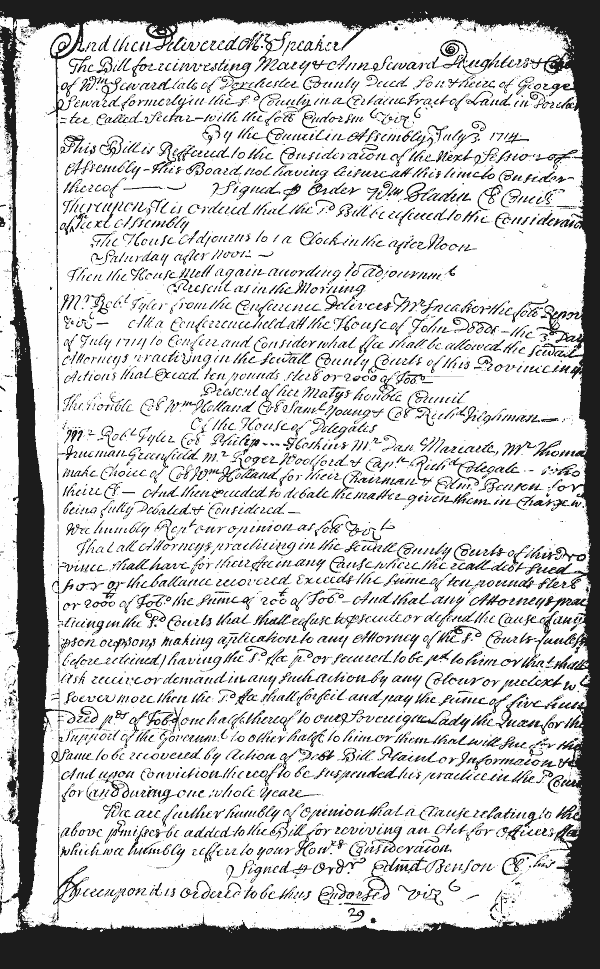 And then Delivered Mr Speaker
The Bill for reinvesting Mary & Ann Seward Daughters &
of Wm Seward late of Dorchester County Deced Son & heire of George
Seward formerly in the sd County in a Certaine tract of Land in Dorches
=ter Called Sectar with the follo Endorsmt vizt
By the Council in Assembly July 3d 1714
This Bill is Reffered to the Consideracon of the Next Sesnor of
Assembly this Board not having leisure att this time to Consider
thereof — Signed p Order Wm Bladen Cl Concil
Thereupon It is ordered that the sd Bill be refered to the Consideracon
of the Next Assembly
The House Adjourns to 1 a Clock in the after Noon
Saturday after noon
Then the House Mett again according to adjournmt
Present as in the Morning
Mr Robt Tyler from the Conference Delivers Mr Speaker the follo Report
vizt — Att a Conference held att the House of John Dodds the 3d Day
of July 1714 to Confer and Consider what ffee shall be allowed the sevall
Attorneys practizing in the sevall County Courts of this Province in
Actions that Exceed ten pounds sterl or 2000 of Tobo
Present of her Matys honble Council
The honble Col Wm Holland Col Saml Young & Col Richd Tilghman
Of the House of Delegates
Mr Robt Tyler Col Philip Hoskins Mr Dan Mariarte, Mr Thoma
Trueman Greenfield Mr Roger Woolford & Capt Richd Colegate who
make Choice of Col Wm Holland for their Chairman & Edmd Benson for
theire Cl — And then proceeded to debate the matter given them in Charge w
being fully Debated & Considered
We humbly Rept our opinion as follo vizt
That all Attorneys practizing in the sevall County Courts of this Pro
vince shall have for their ffee in any Cause where the reall debt sued
for or the ballance recovered Exceeds the sume of ten pounds sterl
or 2000 of Tobo the sume of 200 of Tobo — And that any Attorneys prac
ticing in the sd Courts that shall refuse to psecute or defend the Cause of any
pson or psons making aplication to any Attorney of the sd Courts (unless
before retained) having the sd ffee pd or secured to be pd to him or that shall
Ask receive or demand in any such action by any Colour or pretext w
soever more then the sd ffee shall forfeit and pay the sume of five hun
dred pds of Tobo one half thereof to our Sovereign Lady the Quen for the
Support of the Governmt to other halfe to him or them that will sue for the
Same to be recovered by Action of Debt Bill Plaint or Informacon &
And upon Conviction thereof to be suspended his practice in the sd Court
for and during one whole yeare
We are further humbly of Opinion that a Clause relating to the
above pmisses be added to the Bill for reviving an Act for Officers ffees
which we humbly reffere to your Honrs Consideracon
Signed p Ordr Edmd Benson Cl
Whereupon it is Ordered to be thus Endorsed vizt
29